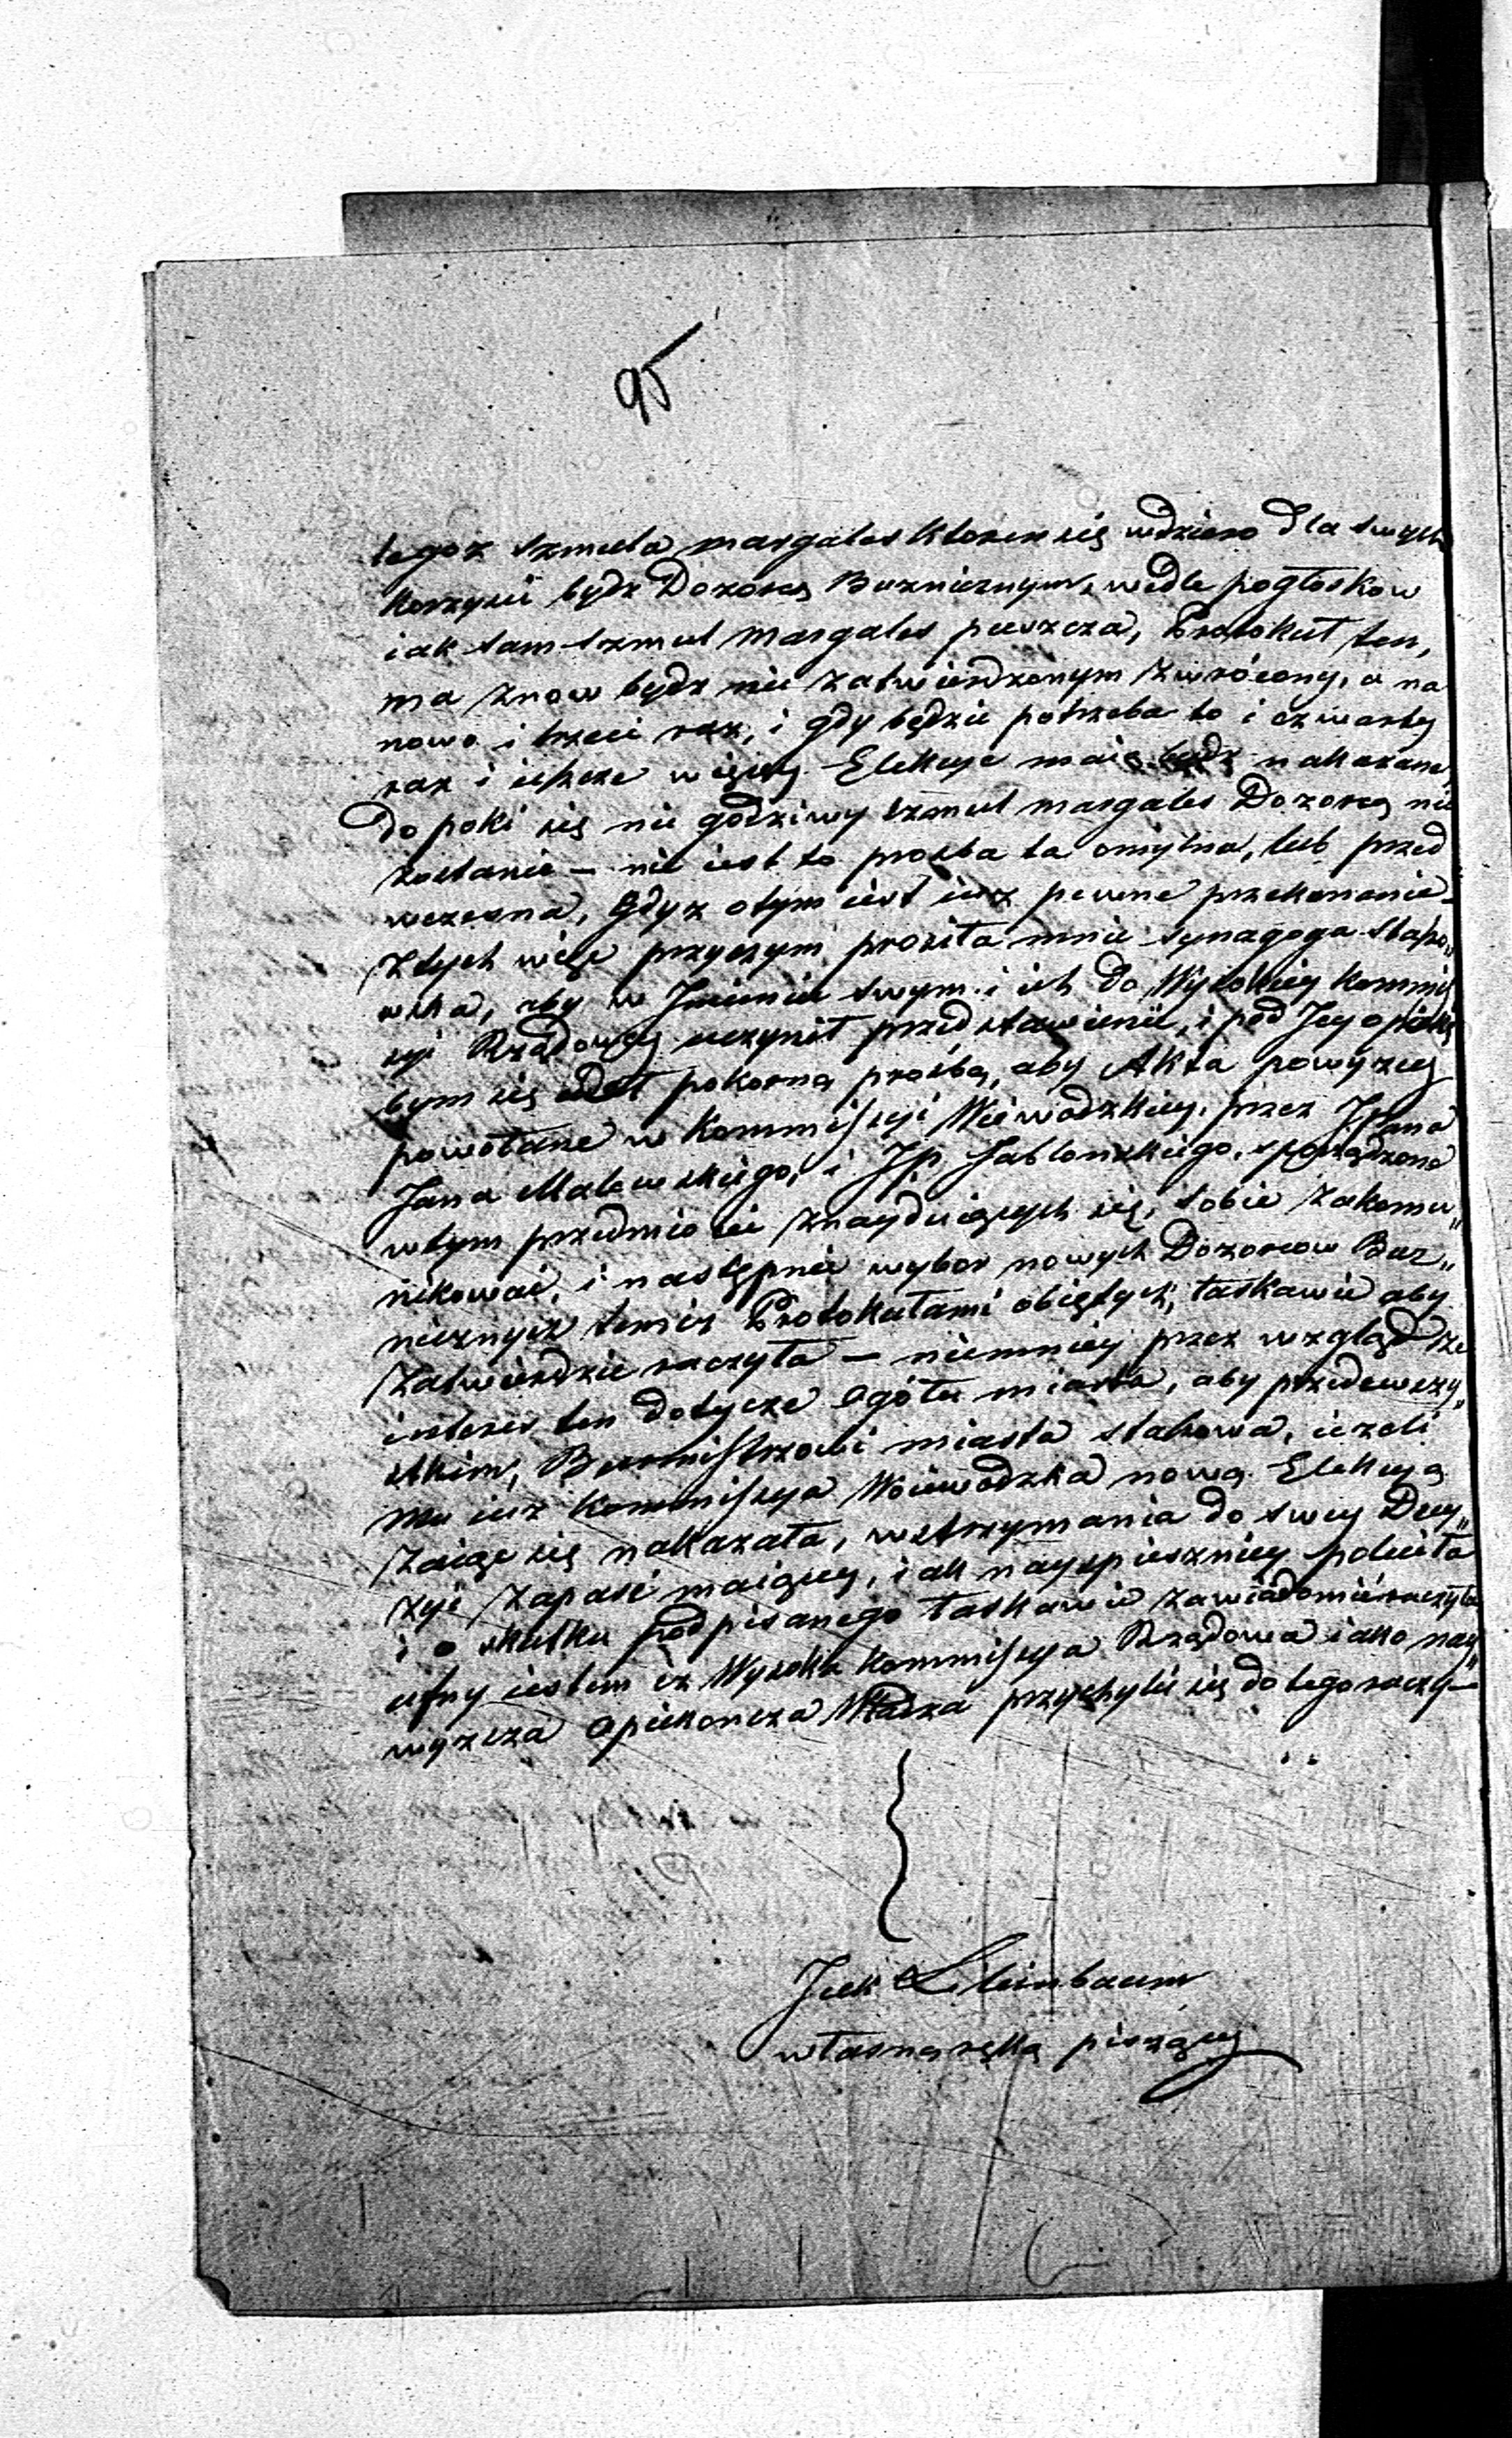 95
tegoż Szmula Margales ktoren się wdziera dla swych
korzyści bydz Dozorcą Buznicznym, wedle pogłoskow
iak sam Szmul Margales puszcza, Protokuł ten,
ma znow bydz nie zatwierdzonym zwrócony, a na
nowo i trzeci raz, i gdy będzie potrzeba to i czwarty
raz i ieszcze więcey Elekcye maią bydz nakazane,
do poki się nie godziwy Szmul Margales Dozorcą nie
zostanie – nie iest to prosba ta omylna, lub przed
wczesna, Gdyż otym iest iuż pewne przekonanie
Ztych więc przyczyn prosiła mnie Synagoga Stapo„
wska, aby w Jmieniu swym i ich do Wysokiey Kommis
syi Rządowey uczynił przedstawienie, i pod Jey opiekę
bym się udał pokorną prośbą, aby Akta powyzey
powołane w Kommissyi Wiewodzkiey, przez JPana
Jana Malewskiego, i Jp. Jablonskiego, sporządzone
wtym przedmiocie znayduiących się, sobie zakomu„
nikować, i następnie wybor nowych Dozorcow Buz„
nicznych temiż Protokułami obiętych, łaskawie aby
zatwierdzić raczyła – niemniey przez wzgląd że
interes ten dotycze ogółu miasta, aby przedewszy„
stkim, Burmistrzowi miasta Stakowa, ieżeli
mu iuż Kommissya Woiewodzka nową Elekcyą
zaiąc się nakazała, wstrzymania do swey Decy„
zyi zapaść maiącey, iak nayspieszniey poleciła
i o skutku podpisanego łaskawie zawiadomić raczyła
ufny iestem iż Wysoka Kommissya Rządowa iako nay„
wyższa Opiekoncza Władza przychylić się do tego raczy
Jcek Steinbaum
własną ręką piszący